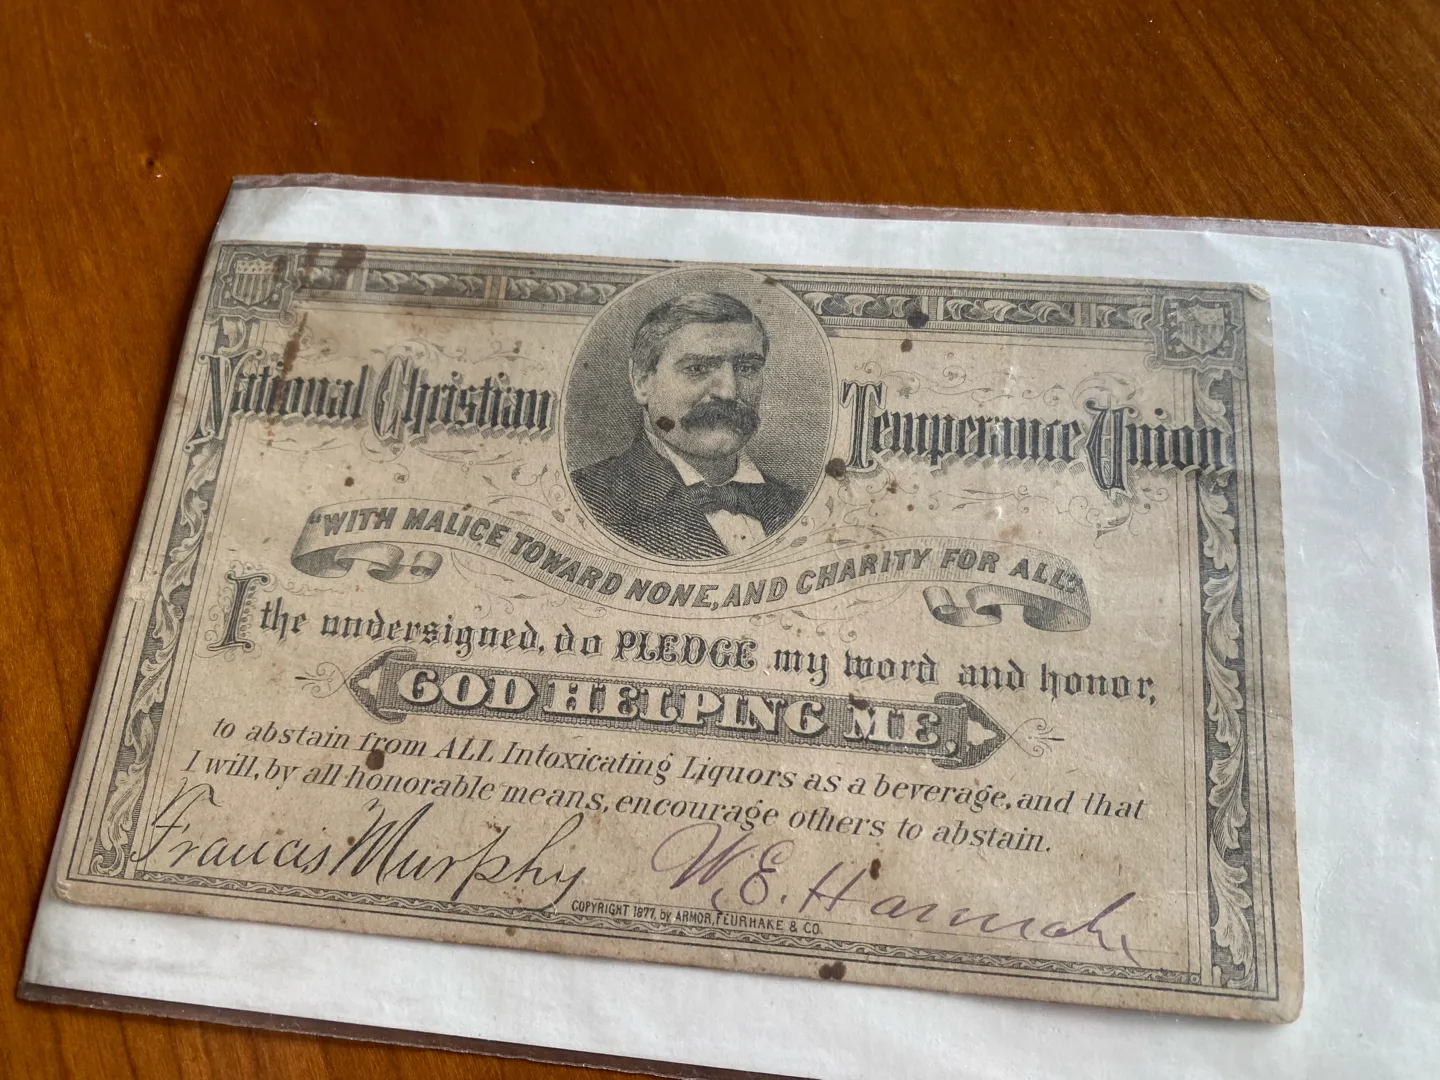 National Christian Temperance Union
"WITH MALICE TOWARD NONE, AND CHARITY FOR ALL"
I the undersigned, do PLEDGE my word and honor,
GOD HELPING ME,
to abstain from ALL Intoxicating Liquors as a beverage, and that
I will, by all honorable means, encourage others to abstain.
Francis Murphy W. E. Hannah
COPYRIGHT 1877, by ARMOR, FEURHAKE & CO.